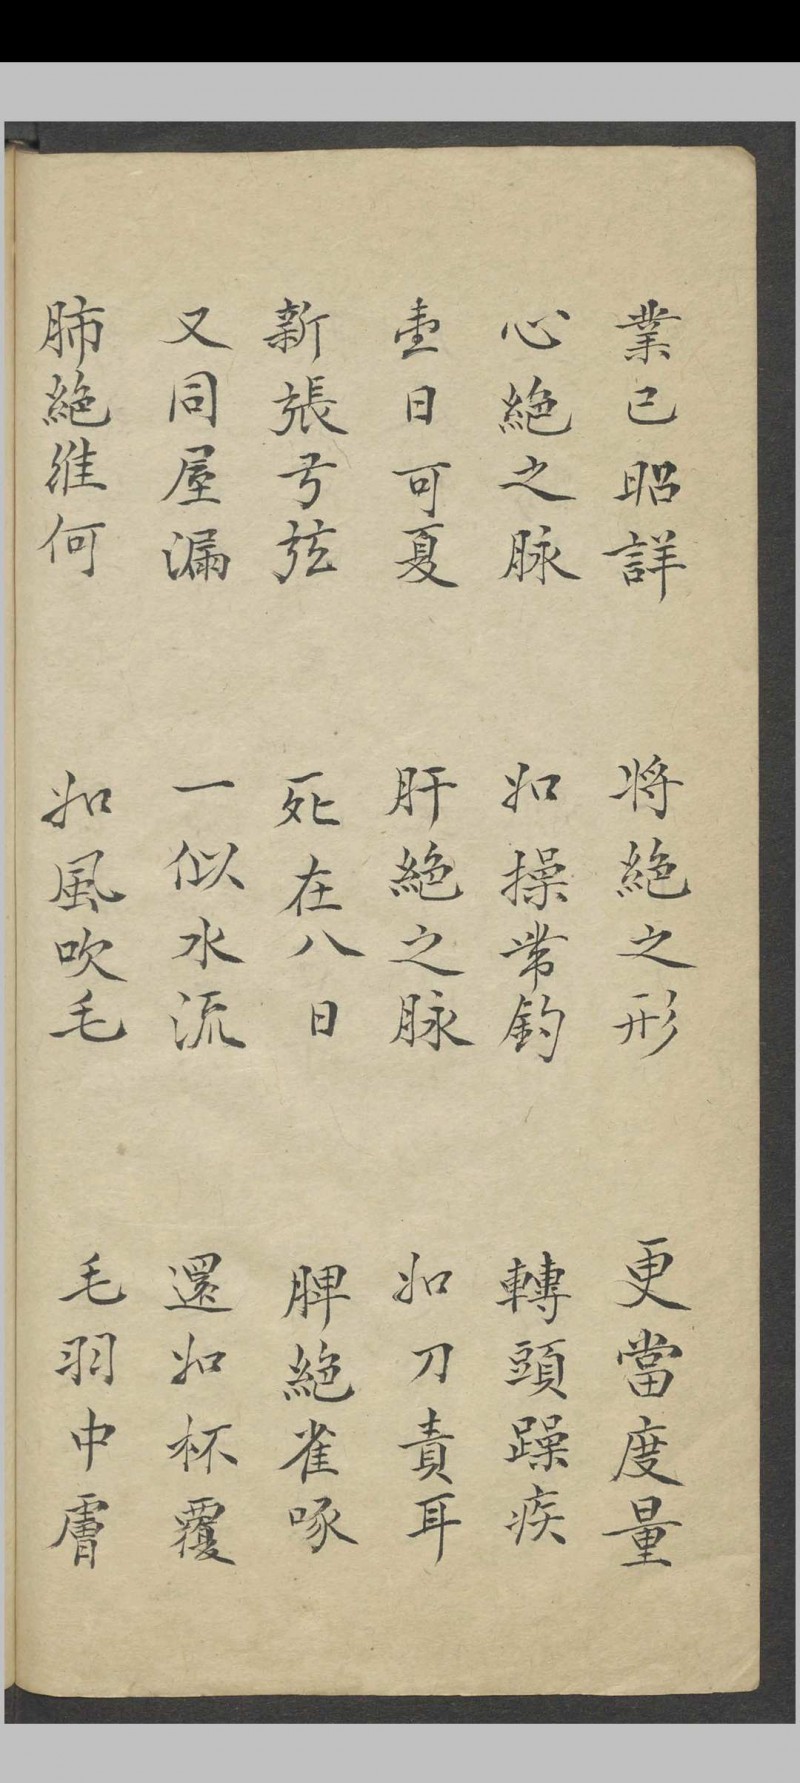 業已昭詳　將絕之形　更當度量
心絕之脉　如操帶鈎　轉頭躁疾
壹日可憂　肝絕之脉　如刀責耳
新張弓弦　死在八日　脾絕雀啄
又同屋漏　一似水流　還如杯覆
肺絕維何　如風吹毛　毛羽中膚